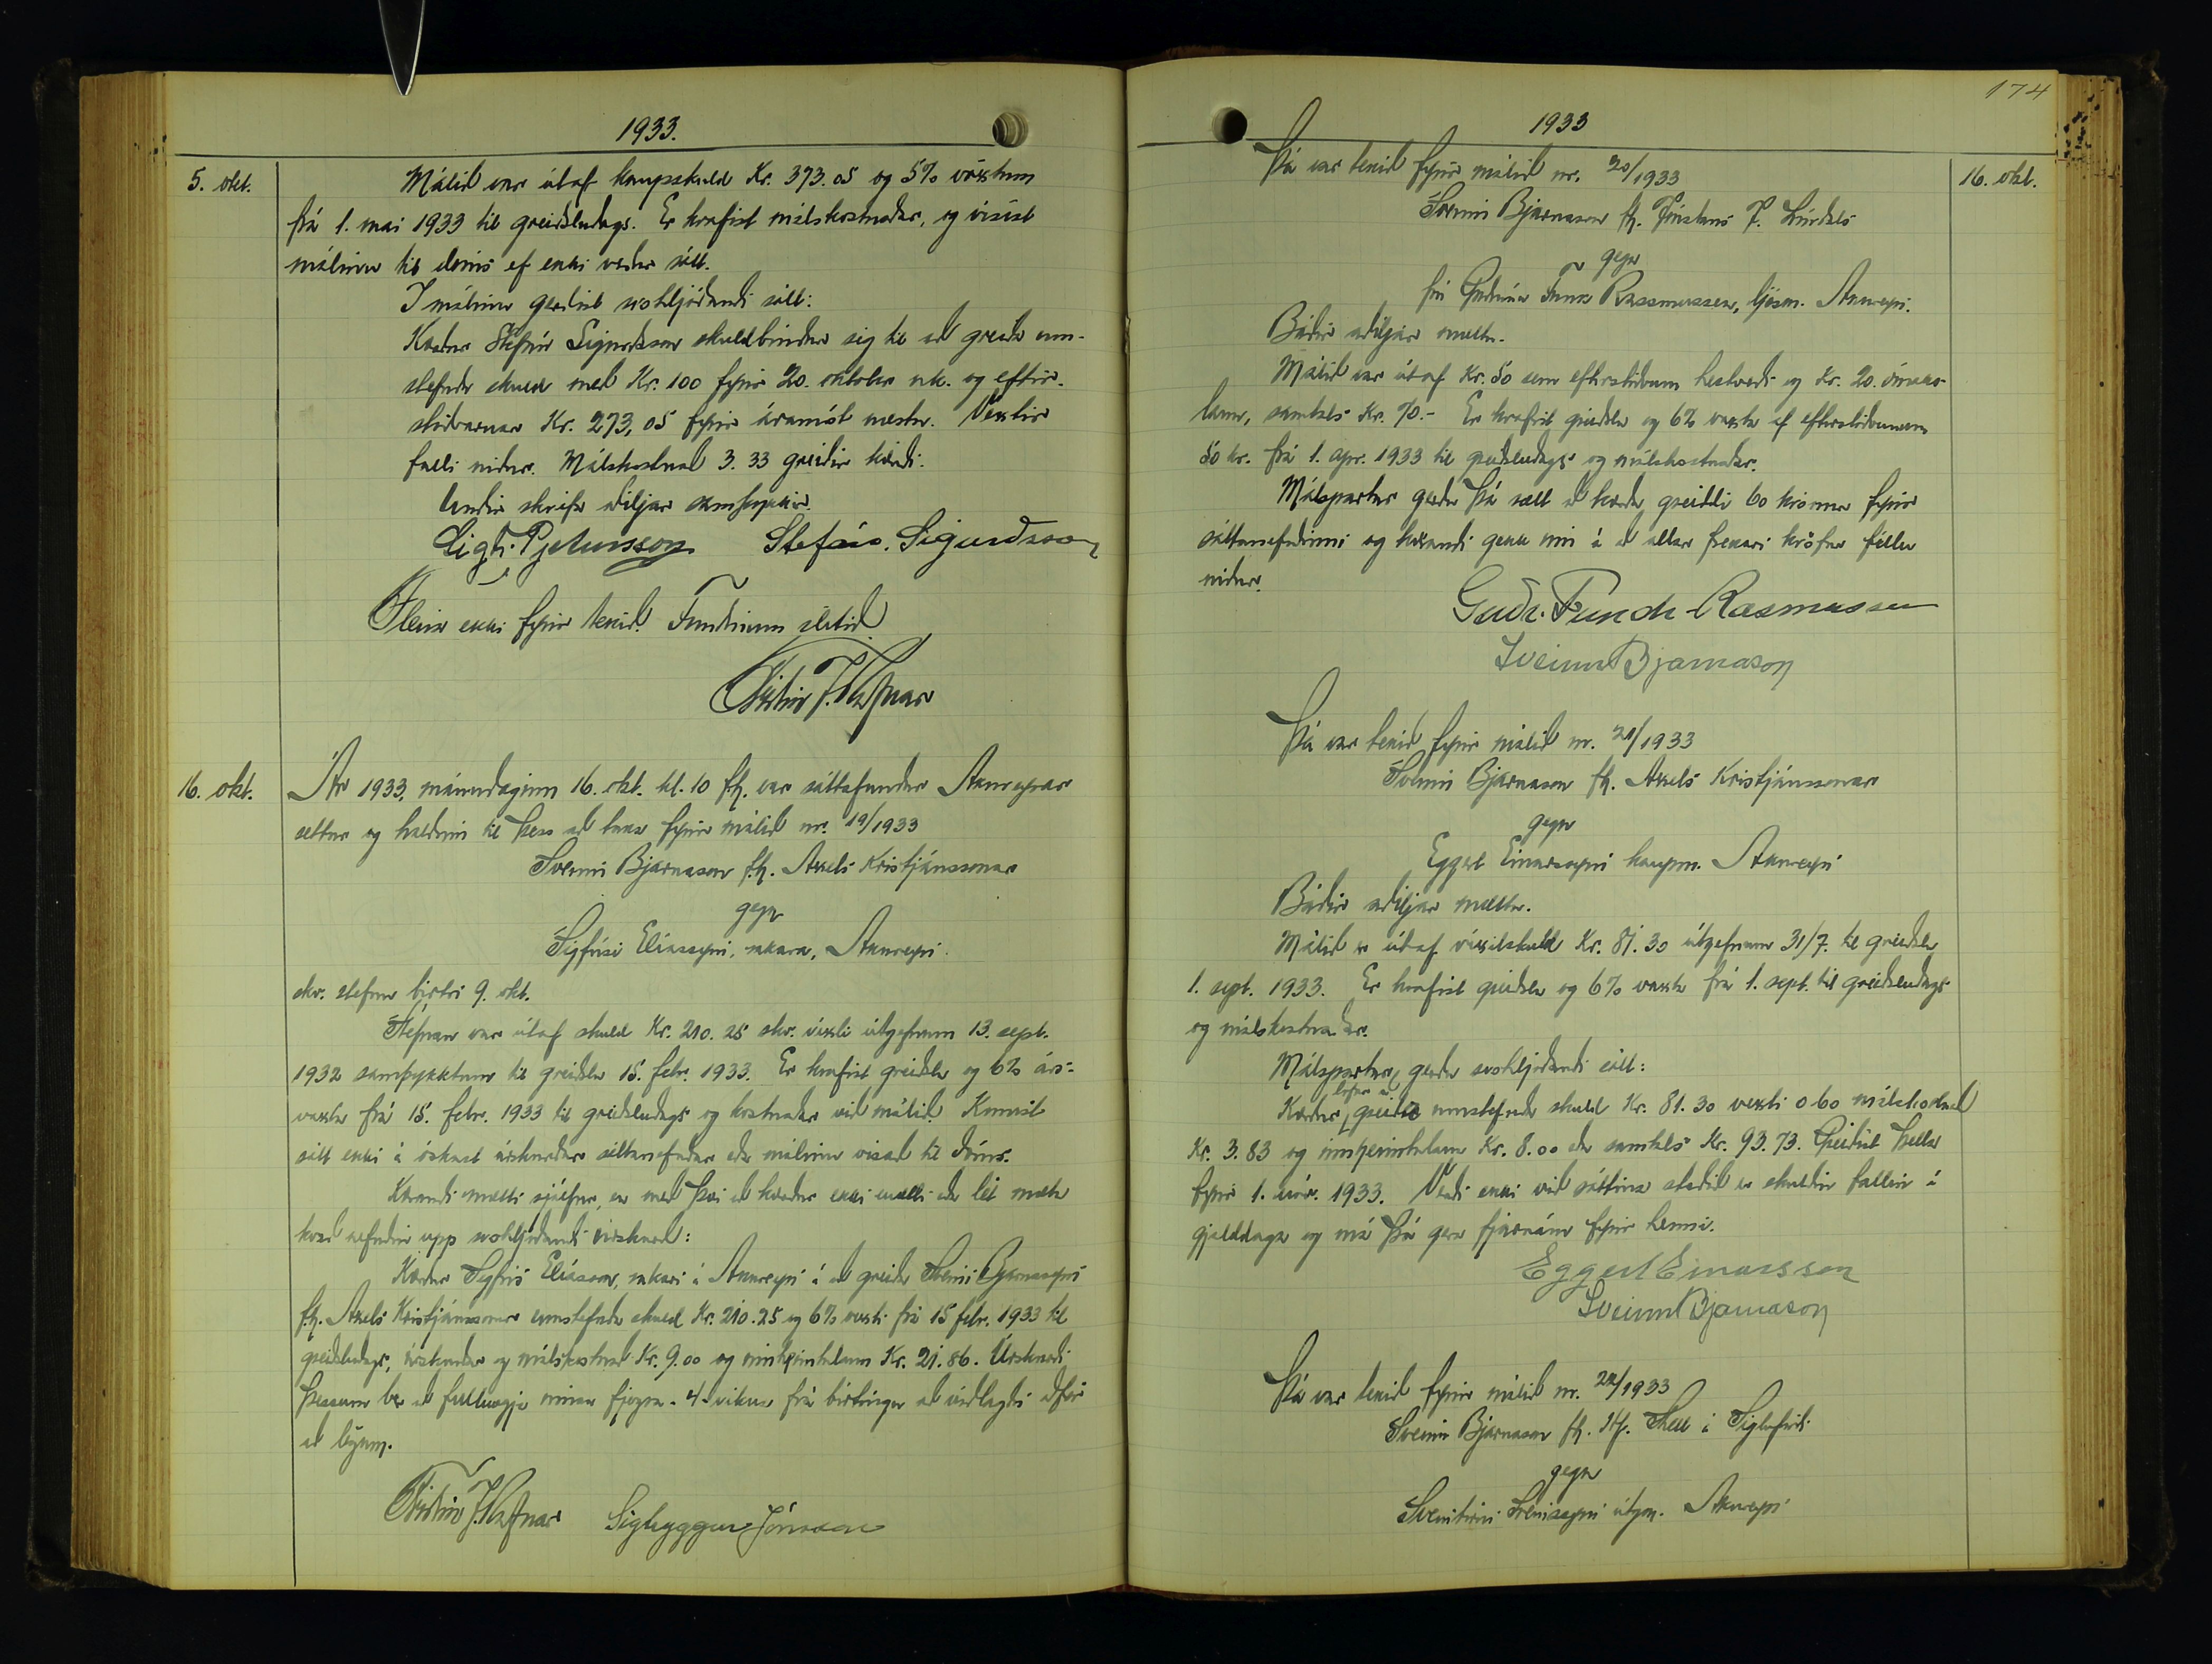 1933.
5. okt.
Málið var útaf kaupskuld Kr. 373.05 og 5% vöxtum
frá 1. mai 1933 til greiðsludags. Er krafist málskostnaðar, og vísist
málinu til dóms ef ekki verður sátt.
Í málinu gerðist svohljóðandi sátt:
Kærður Stefán Sigurðsson skuldbindur sig til að greiða um-
stefnda skuld með Kr. 100 fyrir 20. október n.k. og eftir-
stöðvarnar Kr. 273,05 fyrir áramót næstu. Vextir
falli niður. Málskostnað 3.33 greiðir kærði.
Undir skrifa aðiljar samþykkir.
Sigtr. Pjetursson Stefán. Sigurðsson
Fleira ekki fyrir tekið. Fundinum slitið
Kristinn J. Hafnar
16. okt.
Ár 1933, mánudaginn 16. okt. kl. 10 f.h. var sáttafundur Akureyrar
settur og haldinn til þess að taka fyrir málið nr. 19/1933
Sveinn Bjarnason f.h. Axels Kristjánssonar
gegn
Sigfúsi Elíassyni, rakara, Akureyri.
skv. stefnu birtri 9. okt.
Stefnan var útaf skuld Kr. 210.25 skv. víxli útgefnum 13. sept.
1932 samþykktum til greiðslu 15. febr. 1933. Er krafist greiðslu og 6% árs-
vaxta frá 15. febr. 1933 til greiðsludags og kostnaðar við málið. Komist
sátt ekki á óskast úrskurðar sáttanefndar eða málinu vísað til dóms.
Kærandi mætti sjálfur, en með því að kærður ekki mætti eða lét mæta
kvað nefndin upp svohljóðandi úrskurð:
Kærður Sigfús Elíasson, rakari á Akureyri á að greiða Sveini Bjarnasyni
f.h. Axels Kristjánssonar umstefnda skuld Kr. 210.25 og 6% vexti frá 15 febr. 1933 til
greiðsludags, úrskurðar og málskostnað Kr. 9.00 og innheimtulaun Kr. 21.86. Úrskurði
þessum ber að fullnægja innan fjögra -4- vikna frá birtingu að viðlagðri aðför
að lögum.
Kristinn J. Hafnar Sigtryggur Jónsson
174
1933
16. okt.
Þá var tekið fyrir málið nr. 20/1933
Sveinn Bjarnason fh. J. Líndals
gegn
frú Guðrúnu Funch Rassmussen, ljósm. Akureyri.
Báðir aðiljar mættu.
Málið var útaf Kr. 50 sem eftirstöðvum hestverði og Kr. 20. ómaks-
launa, samtals Kr. 70.- Er krafist greiðslu og 6% vaxta af eftirstöðvunum
50 kr. frá 1. apr. 1933 til greiðsludags og málskostnaðar.
Málspartar gerðu þá sátt að kærða greiddi 60 krónur fyrir
sáttanefndinni og kærandi gekk inn á að allar frekari kröfur féllu
niður.
Guðr. Funch-Rasmussen
Sveinn Bjarnason
Þá var tekið fyrir málið nr. 21/1933
Sveinn Bjarnason fh. Axels Kristjánssonar
gegn
Eggert Einarssyni kaupm. Akureyri
Báðir aðiljar mættu.
Málið er útaf víxilskuld Kr. 81.30 útgefnum 31/7. til greiðslu
1. sept. 1933. Er krafist greiðslu og 6% vaxta frá 1. sept. til greiðsludags
og málskostnaðar.
Málspartar gerðu svohljóðandi sátt:
lofar að
Kærður greiða umstefnda skuld Kr. 81.30 vexti 0.60 málskostnað
Kr. 3.83 og innheimtulaun Kr. 8.00 eða samtals Kr. 93.73. Greiðist þetta
fyrir 1. nóv. 1933. Verði ekki við sáttina staðið er skuldin fallin í
gjalddaga og má þá gera fjárnám fyrir henni.
Eggert Einarsson
Sveinn Bjarnason
Þá var tekið fyrir málið nr. 22/1933
Sveinn Bjarnason fh. Hf. Shell í Siglufirði
gegn
Sveinbirni Sveinssyni útgm. Akureyri